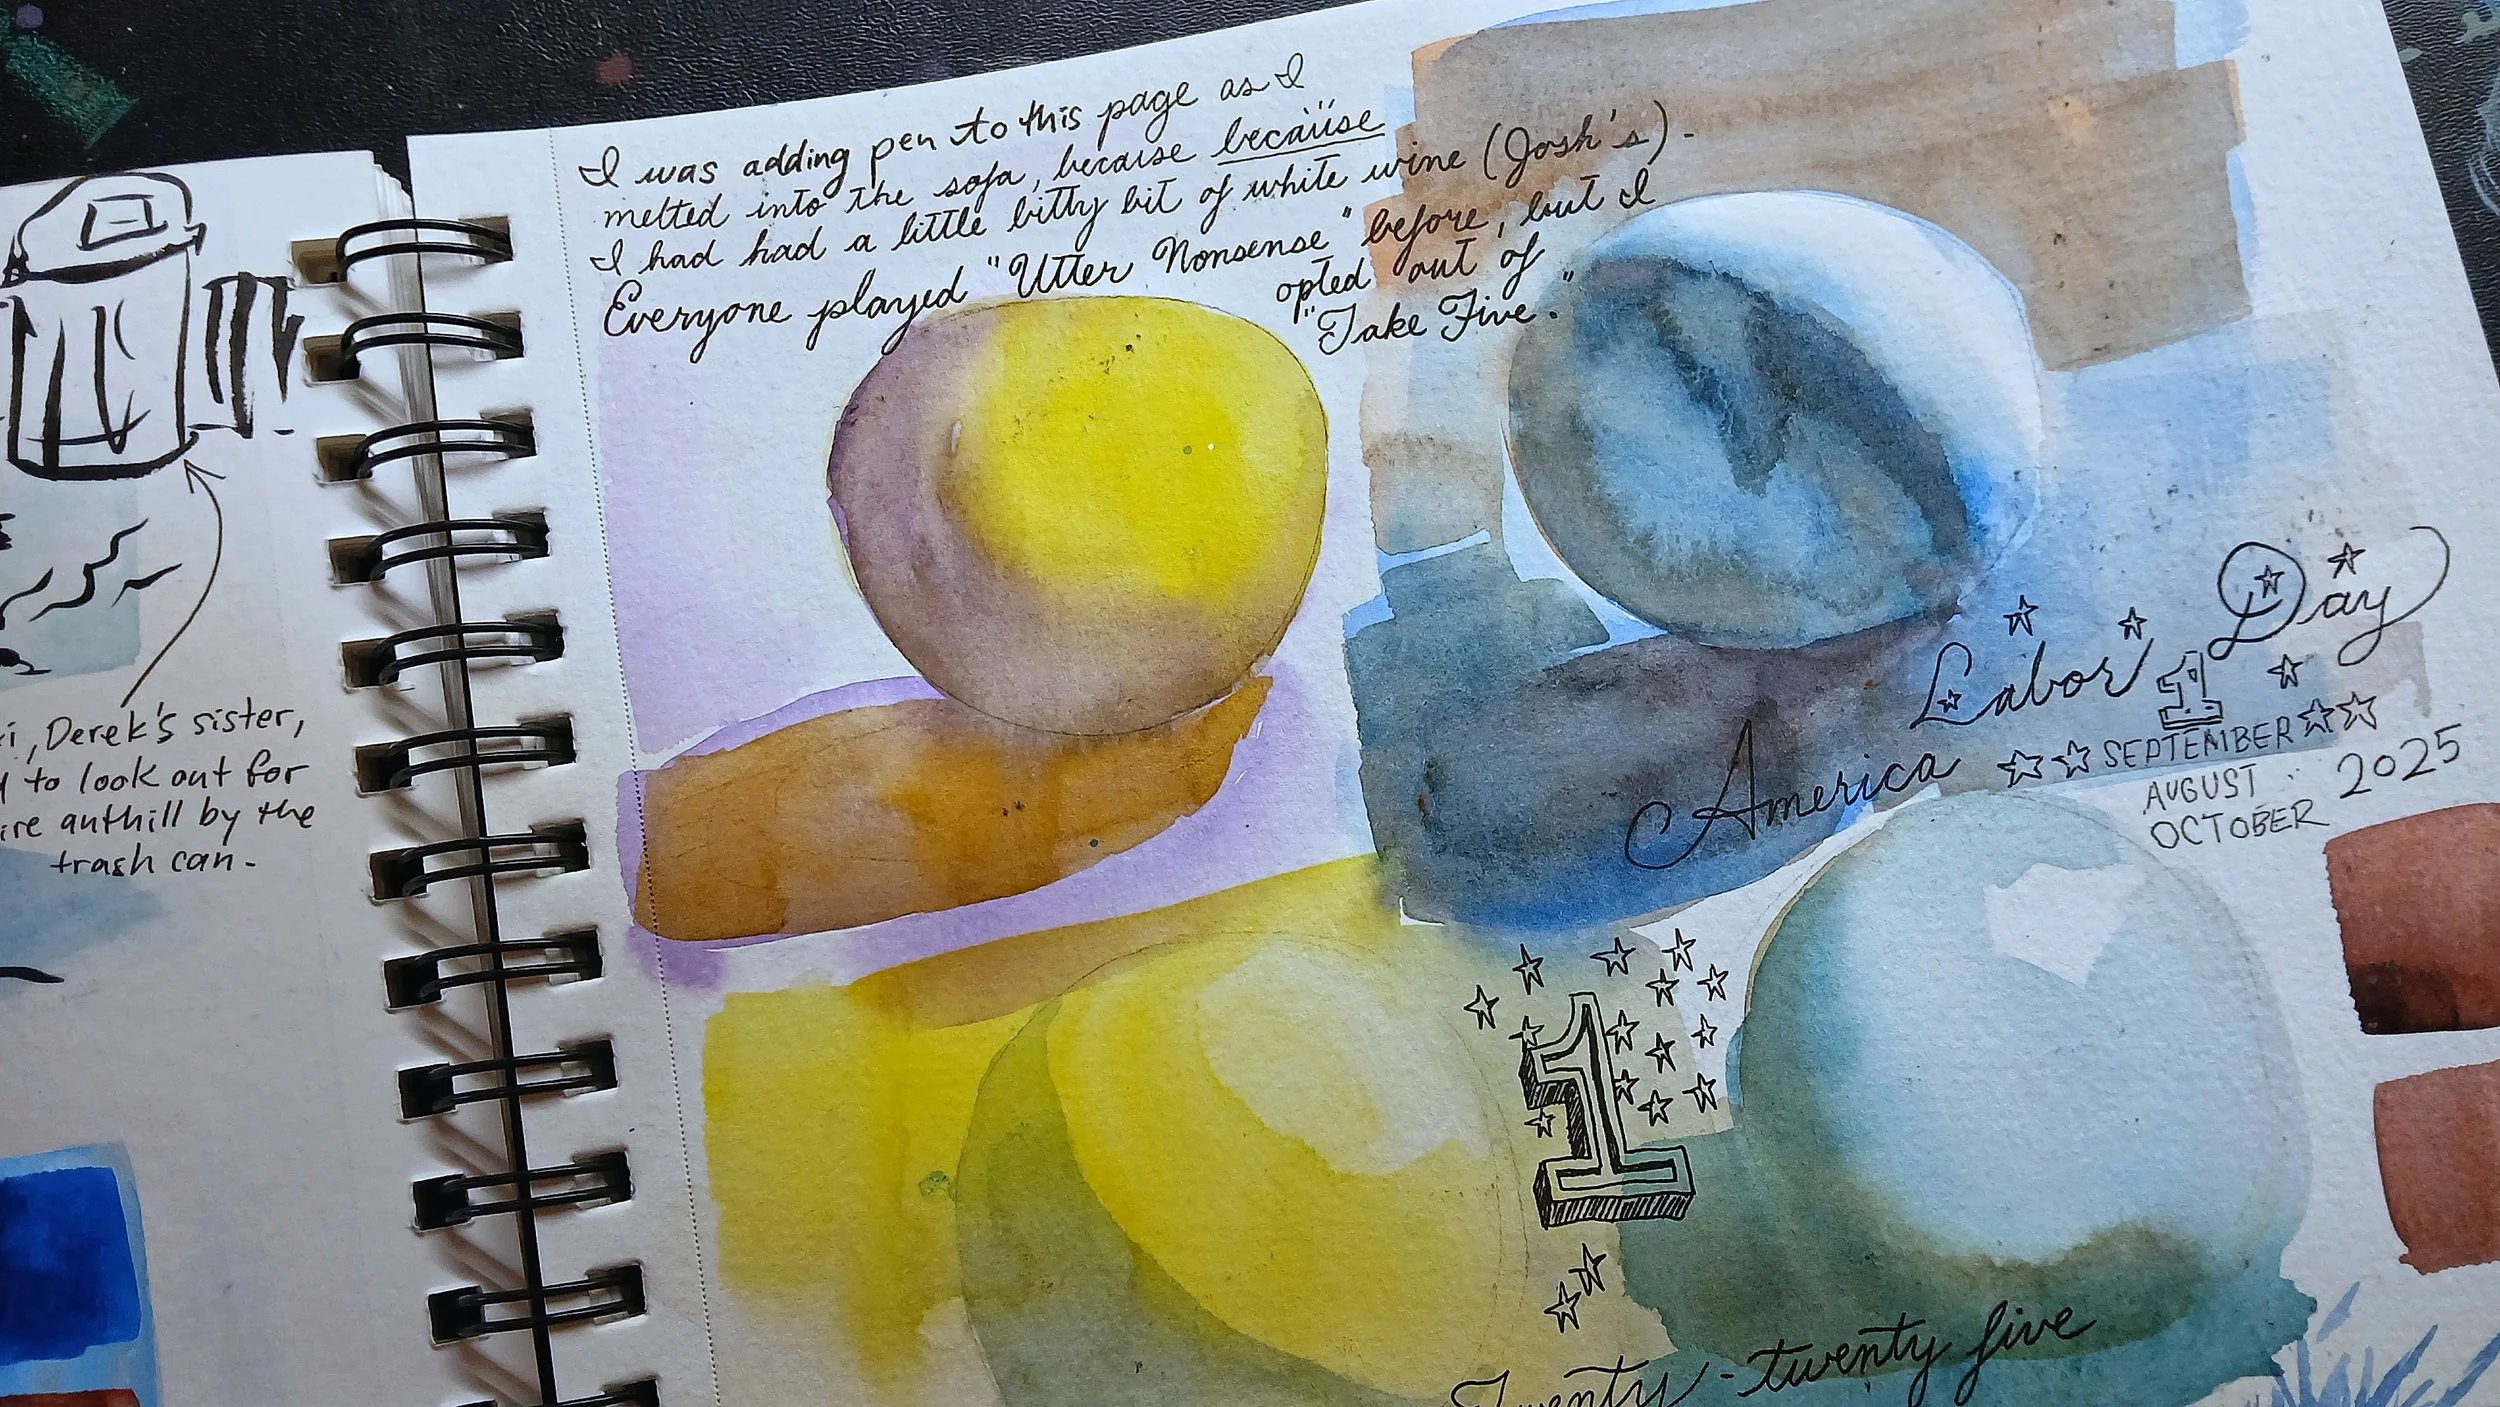 I was adding pen to this page as I
melted into the sofa, because because
I had had a little bitty bit of white wine (Josh's).
Everyone played "Utter Nonsense" before, but I
opted out of
"Take Five."
Derek's sister,
to look out for
anthill by the
trash can.
Labor Day
America
1
SEPTEMBER
AUGUST
OCTOBER
2025
1
Twenty-twenty five